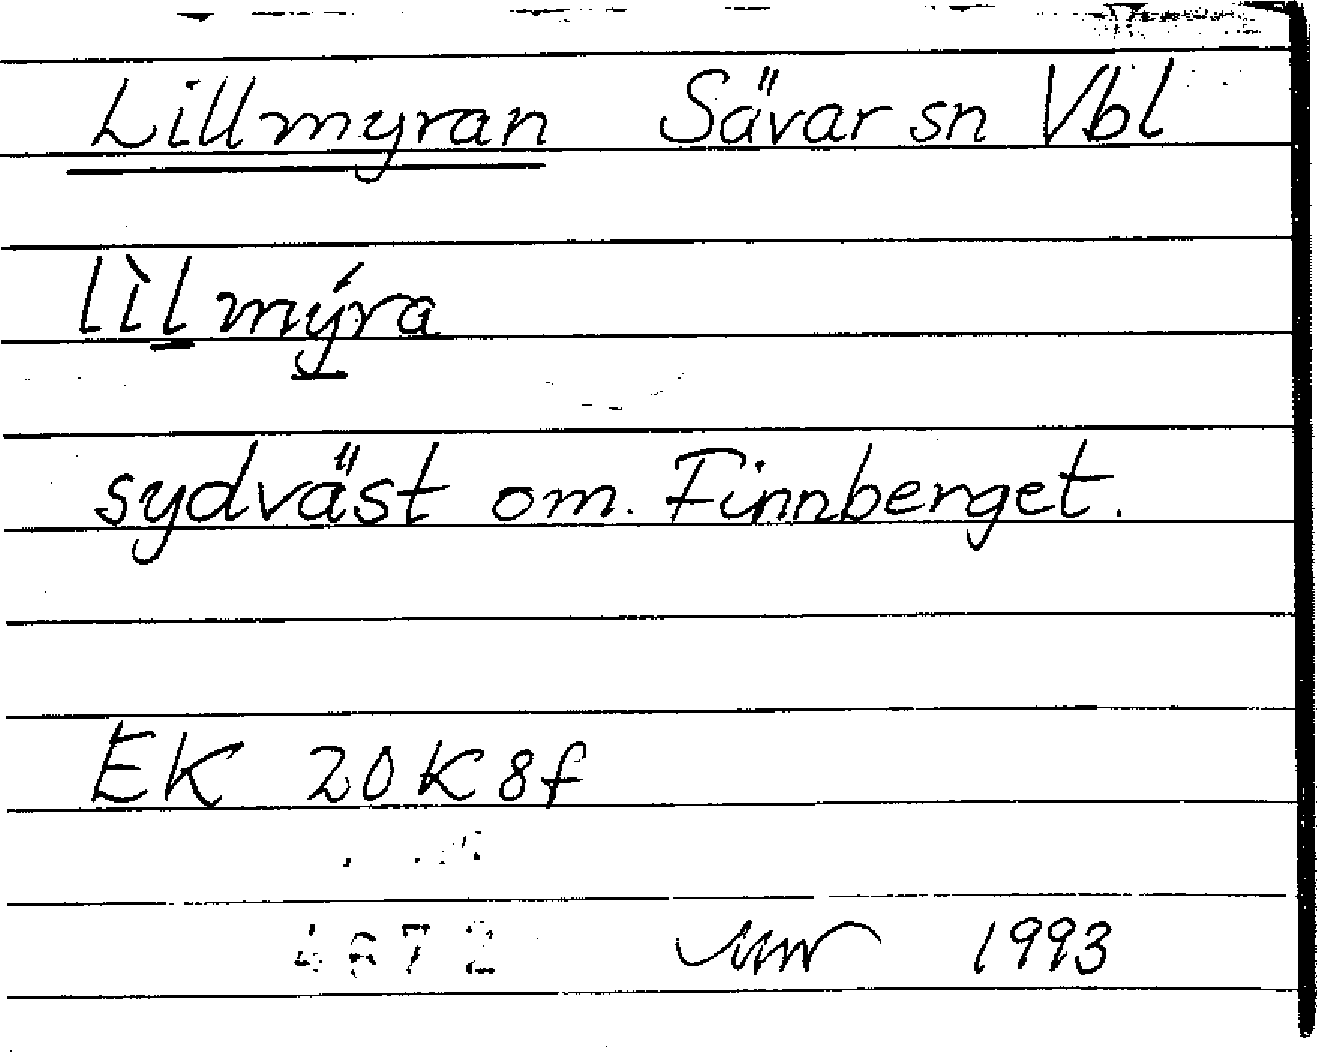 Lillmyran Sävar sn Vbl
lìlmýra
sydväst om. Finnberget.
EK 20K8f
1993